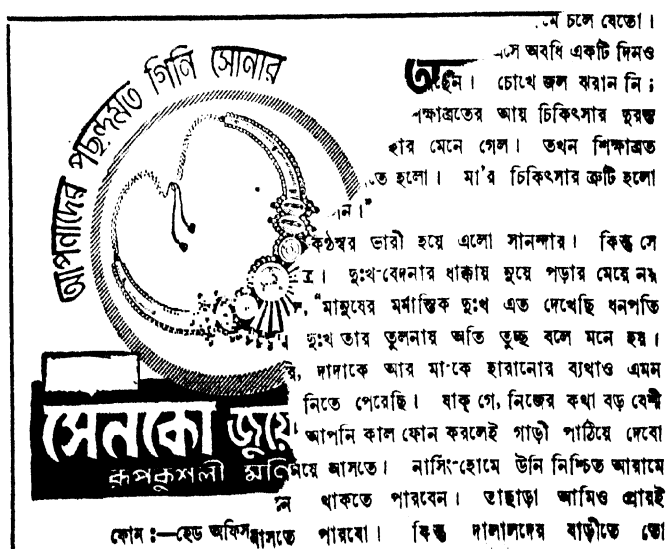 আপনাদের পছন্দমত গিনি সোনার
সেনকো
রূপকুশলী
ফোন :—হেড অফিস
চলে যেতো।
অবধি একটি দিনও
চোখে জল ঝরান নি;
আয় চিকিৎসার দুরন্ত
মেনে গেল। তখন শিক্ষাব্রত
হলো। মা'র চিকিৎসার ত্রুটি হলো
কণ্ঠস্বর ভারী হয়ে এলো সানন্দার। কিন্তু সে
দুঃখ-বেদনার ধাক্কায় নুয়ে পড়ার মেয়ে নয়
"মানুষের মর্মান্তিক দুঃখ এত দেখেছি ধনপতি
দুঃখ তার তুলনায় অতি তুচ্ছ বলে মনে হয়।
দাদাকে আর মা-কে হারানোর ব্যথাও এমন
নিতে পেরেছি। যাক্ গে, নিজের কথা বড় বেশী
আপনি কাল ফোন করলেই গাড়ী পাঠিয়ে দেবো
আসতে। নার্সিং-হোমে উনি নিশ্চিত আরামে
থাকতে পারবেন। তাছাড়া আমিও প্রায়ই
আসতে পারবো। কিন্তু দালালদের বাড়ীতে তো